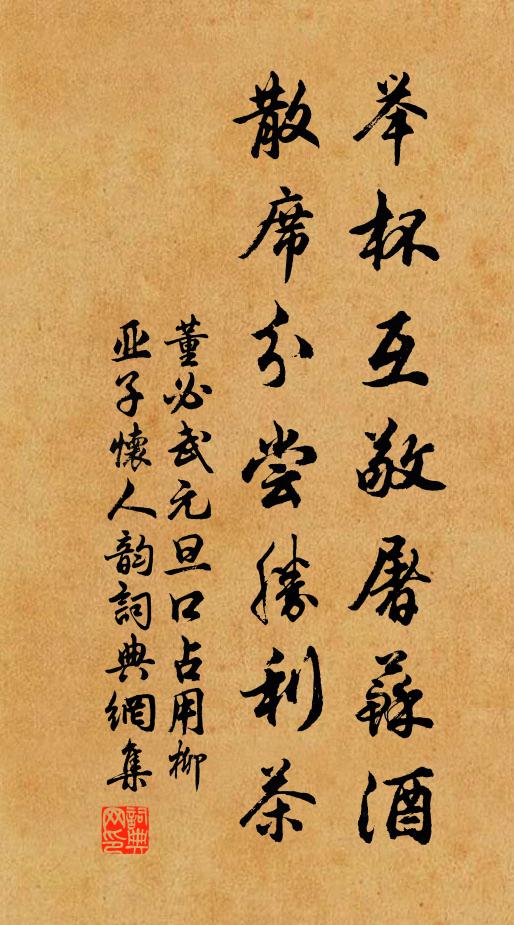 举杯互敬屠蘇酒
散席分尝勝利茶
董必武元旦口占用柳
亚子懷人韵詞典網集
詞典网印